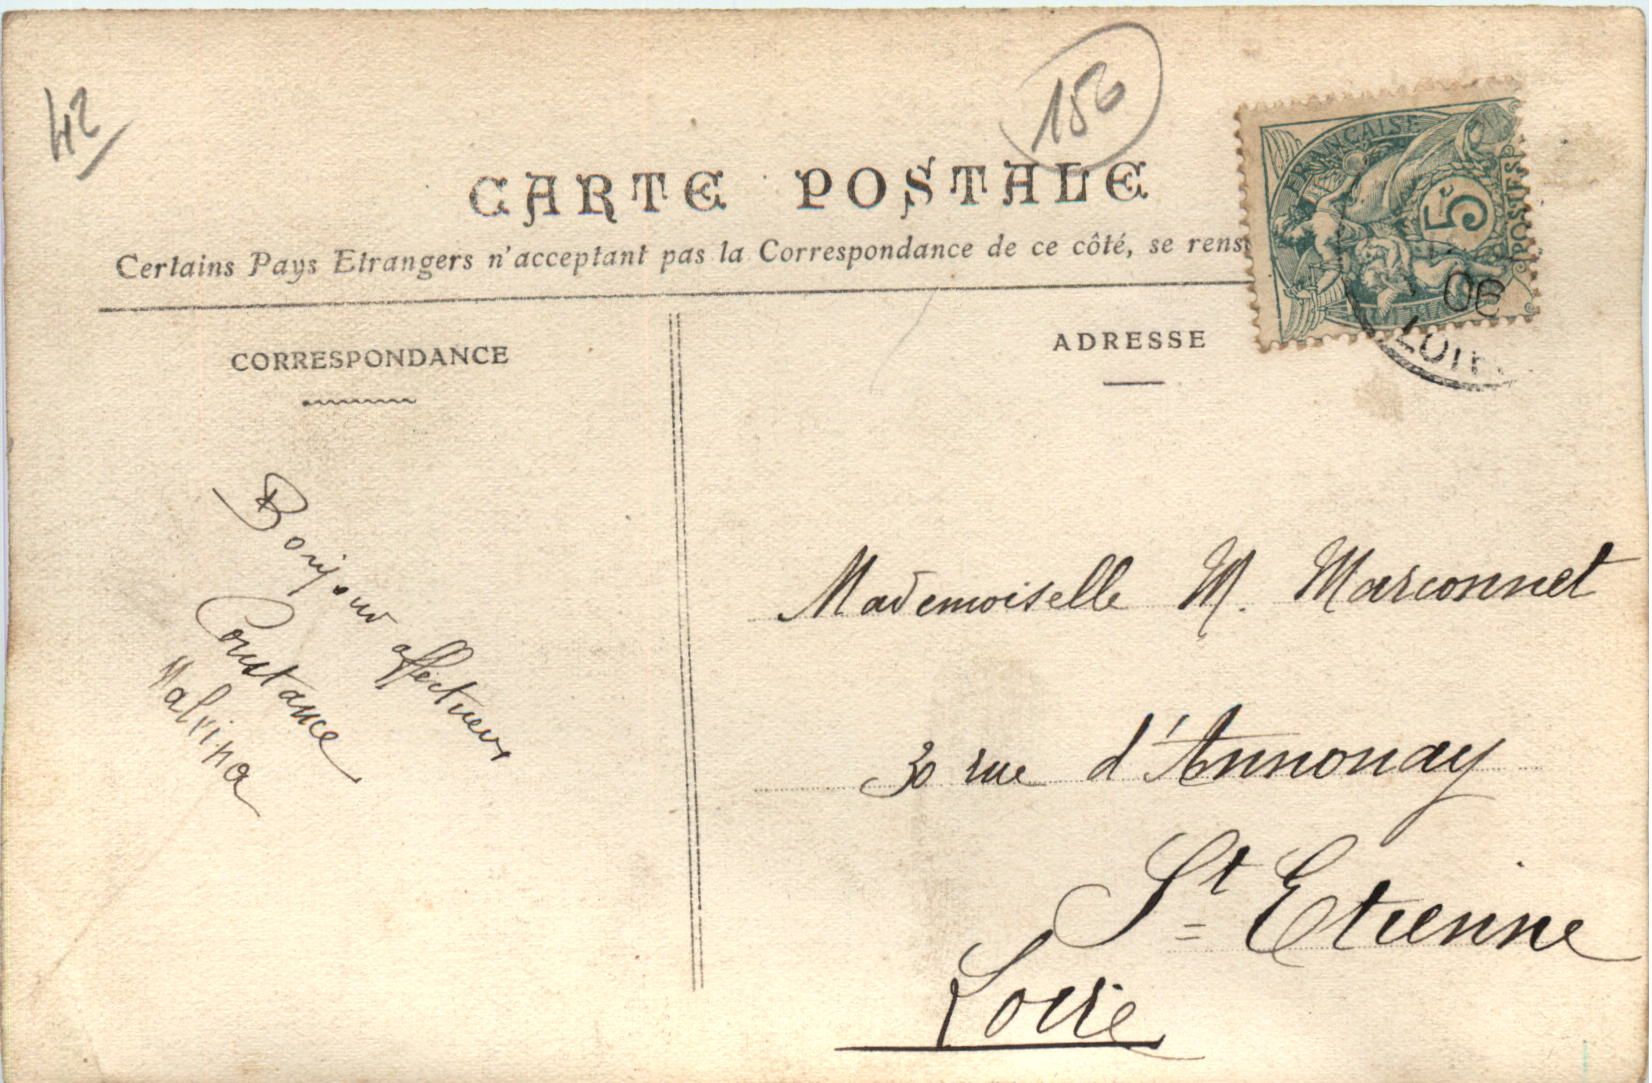 42
156
CARTE POSTALE
Certains Pays Etrangers n'acceptant pas la Correspondance de ce côté, se rens
FRANÇAISE
5c
POSTES
06
LOIR
CORRESPONDANCE
ADRESSE
Bonjour affectueux
Constance
Malvina
Mademoiselle M. Marconnet
30 rue d'Annonay
St Etienne
Loire